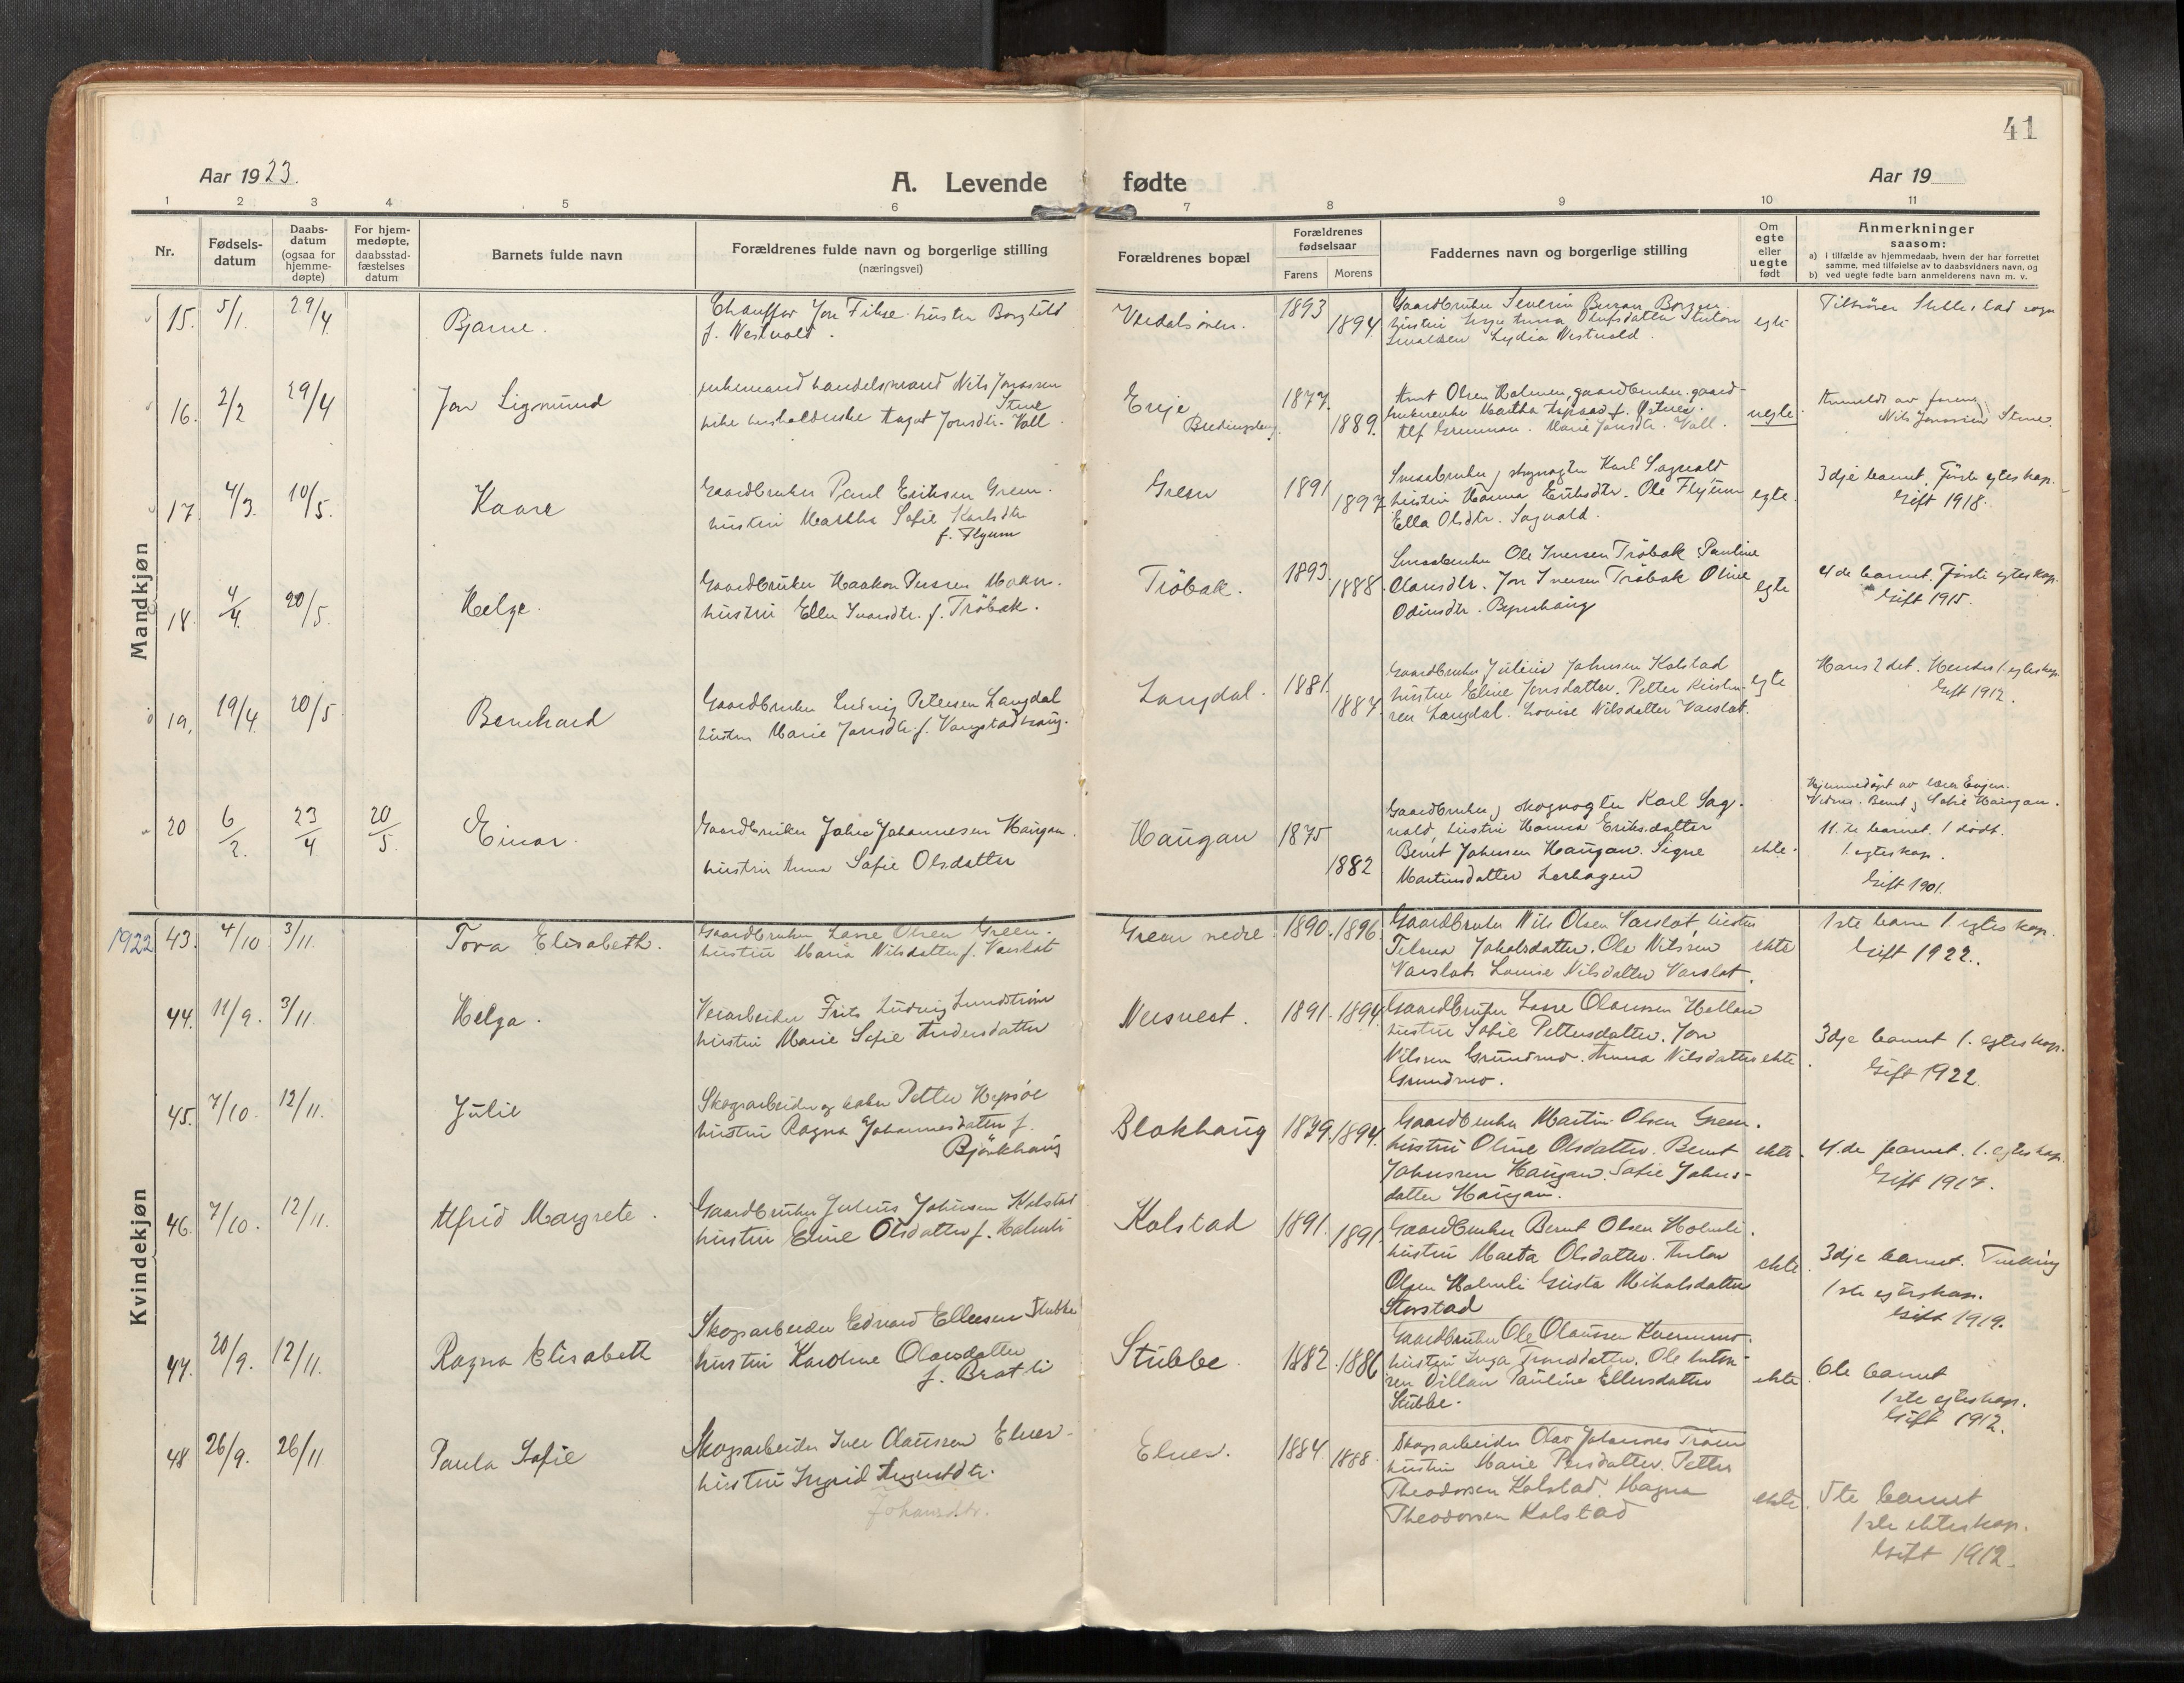 41
Aar 1923.
A. Levende fødte
Aar 19
1 2 3 4 5 6 7 8 9 10 11
Nr.
Fødsels-
datum
Daabs-
datum
(ogsaa for
hjemme-
døpte)
For hjem-
medøpte,
daabsstad-
fæstelses
datum
Barnets fulde navn
Forældrenes fulde navn og borgerlige stilling
(næringsvei)
Forældrenes bopæl
Forældrenes
fødselsaar
Farens
Morens
Faddernes navn og borgerlige stilling
Om
egte
eller
uegte
født
Anmerkninger
saasom:
a) i tilfælde av hjemmedaab, hvem der har forrettet
samme, med tilføielse av to daabsvidners navn, og
b) ved uegte fødte barn anmelderens navn m. v.
Mandkjøn
15. 5/1. 29/4
Bjarne.
Chauffør Jon hustru Borghild
f. Vestvold.
Verdalsøren.
1893
1894
Gaardbruker Severin
hustru Anna Olufsdatter
Lydia Vestvold.
egte
Tilhører sogn
16. 2/2 29/4
Jon Sigmund
enkemand handelsmand Nils Jonassen
Stene
pike husholderske Aagot Jonsdtr. Vall.
1877.
1889.
Arnt Olsen Holmen, gaardbruker. gaard-
Martha f.
Alf Marie Jonsdtr. Vall.
uegte.
Anmeldt av faren
Nils Jonassen Stene.
17. 4/3. 10/5.
Kaare
Gaardbruker Paul Eriksen Green.
hustru Martha Sofie Karlsdtr
f. Flyum
Green
1891
1897
skogvogter Karl Sagvold
hustru Hanna Eriksdtr. Ole Flyum
Ella Olsdtr. Sagvold.
egte.
3dje barnet. Første egteskap.
Gift 1918.
18. 4/4. 20/5.
Helge.
Gaardbruker Haakon
hustru Ellen Ivarsdtr. f. Trøbak.
Trøbak.
1893.
1888.
Smaabruker Ole Iversen Trøbak Pauline
Olausdtr. Jon Iversen Trøbak Oline
Odinsdtr.
egte
4de barnet. Første egteskap.
Gift 1915.
19. 19/4. 20/5
Bernhard
Gaardbruker Ludvig Petersen Langdal
hustru Marie Jonsdtr. f. Vangstadhaug.
Langdal.
1881.
1884.
Gaardbruker Julius Johnsen Kolstad
hustru Eline Jonsdatter. Petter Kristen-
sen Langdal. Lovise Nilsdatter Varslot.
egte
Hans 2det. Hendes 1. egteskap.
Gift 1912.
20 6/2. 23/4 20/5.
Einar.
Gaardbruker John Johannesen Haugan.
hustru Anna Sofie Olsdatter
Haugan
1875
1882
Gaardbruker, skogvogter Karl Sag-
vold, hustru Hanna Eriksdatter
Bernt Johnsen Haugan. Signe
Martinsdatter Lerhagen
ekte.
Hjemmedøpt av
Vidner. Bernt, Sofie Haugan.
11.te barnet. 1 dødt.
1. egteskap.
Gift 1901.
Kvindekjøn
1922 43. 4/10 3/11.
Tora Elisabeth.
Gaardbruker Lasse Olsen Green.
hustru Maria Nilsdatter f. Varslot
Green nedre
1890. 1896.
Gaardbruker Nils Olsen Varslot, hustru
Jakobsdatter. Ole Nilssen
Varslot. Louise Nilsdatter Varslot.
ekte
1ste barn 1. egteskap.
Gift 1922.
44. 11/9. 3/11.
Helga.
Veiarbeider Frits Ludvig Lundstrøm
hustru Marie Sofie Andersdatter
1891. 1894.
Gaardbruker Lasse Olaussen Hallan
hustru Sofie Pettersdatter. Jon
Nilsen Grundmo. Anna Nilsdatter
Grundmo.
ekte
3dje barnet 1. egteskap.
Gift 1922.
45. 7/10. 12/11.
Julie
Skogsarbeider og Petter Hepsøe
hustru Ragna Johannesdatter f.
Bjørkhaug
Blokhaug
1894.
Gaardbruker Martin Olsen Green.
hustru Oline Olsdatter. Bernt
Johnssen Haugan. Sofie Johns-
datter Haugan.
ekte.
4.de barnet. 1. egteskap.
Gift 1917.
46. 7/10. 12/11.
Alfrid Margrete.
Gaardbruker Julius Johnsen Kolstad
hustru Eline Olsdatter f. Holmli
Kolstad
1891. 1891.
Gaardbruker Bernt Olsen Holmli.
hustru Marta Olsdatter. Anton
Olsen Holmli Gusta Mikalsdatter
Storstad
ekte.
3dje barnet. Tvilling
1ste egteskap.
Gift 1919.
47. 20/9. 12/11.
Ragna Elisabeth
Skogsarbeider Edvard Ellesen Stubbe
hustru Karoline Olausdatter
f. Bratli
Stubbe.
1882. 1886
Gaardbruker Ole Olaussen Kvernmo.
hustru Inga Trondsdatter. Ole Anton-
sen Dillan Pauline Ellersdatter
Stubbe.
ekte.
6te barnet
1ste egteskap.
Gift 1912.
48 26/9. 26/11
Paula Sofie
Skogsarbeider Iver Olaussen Elnes.
hustru Ingrid Augustdtr.
Johansdtr.
Elnes.
1884. 1888.
Skogsarbeider Olav Johannes
hustru Marie Persdatter. Petter
Theodorsen Kolstad. Magna
Theodorsen Kolstad
ekte.
5te barnet
1ste ekteskap.
Gift 1912.